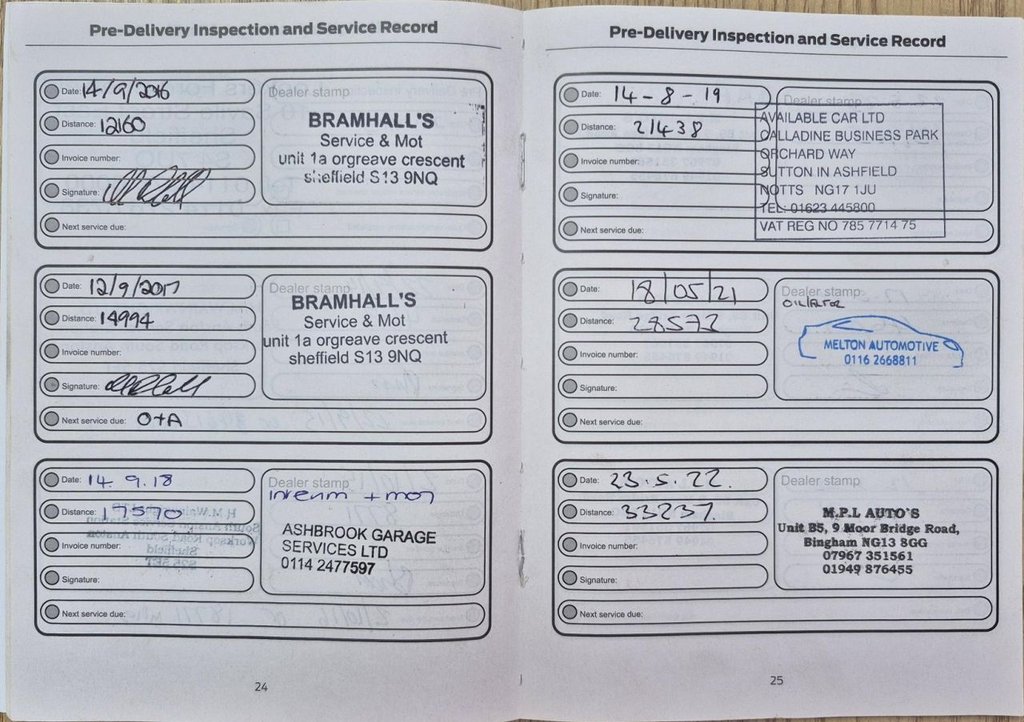 Pre-Delivery Inspection and Service Record
Date: 14/9/2016
Distance: 12160
Invoice number:
Signature:
Next service due:
Dealer stamp
BRAMHALL'S
Service & Mot
unit 1a orgreave crescent
sheffield S13 9NQ
Date: 12/9/2017
Distance: 14994
Invoice number:
Signature:
Next service due: O+A
Dealer stamp
BRAMHALL'S
Service & Mot
unit 1a orgreave crescent
sheffield S13 9NQ
Date: 14.9.18
Distance: 17570
Invoice number:
Signature:
Next service due:
Dealer stamp
interim + mot
ASHBROOK GARAGE
SERVICES LTD
0114 2477597
24
Pre-Delivery Inspection and Service Record
Date: 14-8-19
Distance: 21438
Invoice number:
Signature:
Next service due:
Dealer stamp
AVAILABLE CAR LTD
CALLADINE BUSINESS PARK
ORCHARD WAY
SUTTON IN ASHFIELD
NOTTS NG17 1JU
TEL: 01623 445800
VAT REG NO 785 7714 75
Date: 18/05/21
Distance: 28573
Invoice number:
Signature:
Next service due:
Dealer stamp
OIL/FILTER
MELTON AUTOMOTIVE
0116 2668811
Date: 23.5.22.
Distance: 33237.
Invoice number:
Signature:
Next service due:
Dealer stamp
M.P.L AUTO'S
Unit B5, 9 Moor Bridge Road,
Bingham NG13 8GG
07967 351561
01949 876455
25